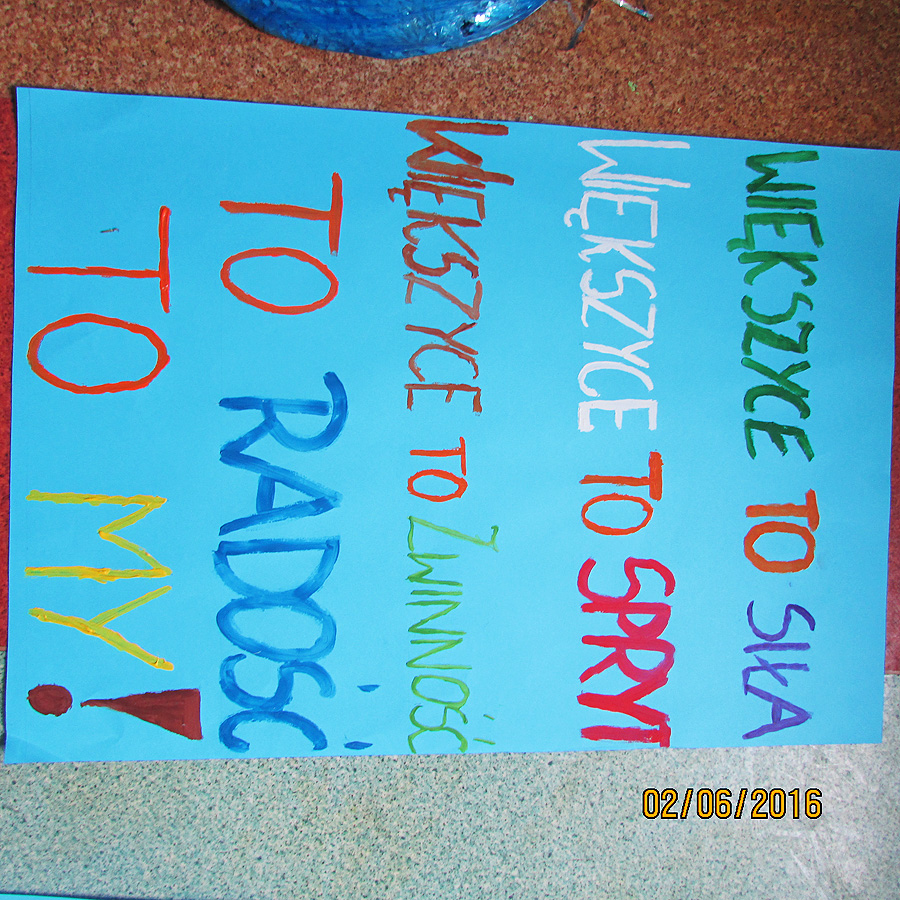 WIĘKSZYCE TO SIŁA
WIĘKSZYCE TO SPRYT
WIĘKSZYCE TO ŻWINNOŚĆ
TO RADOŚĆ
TO MY!
02/06/2016